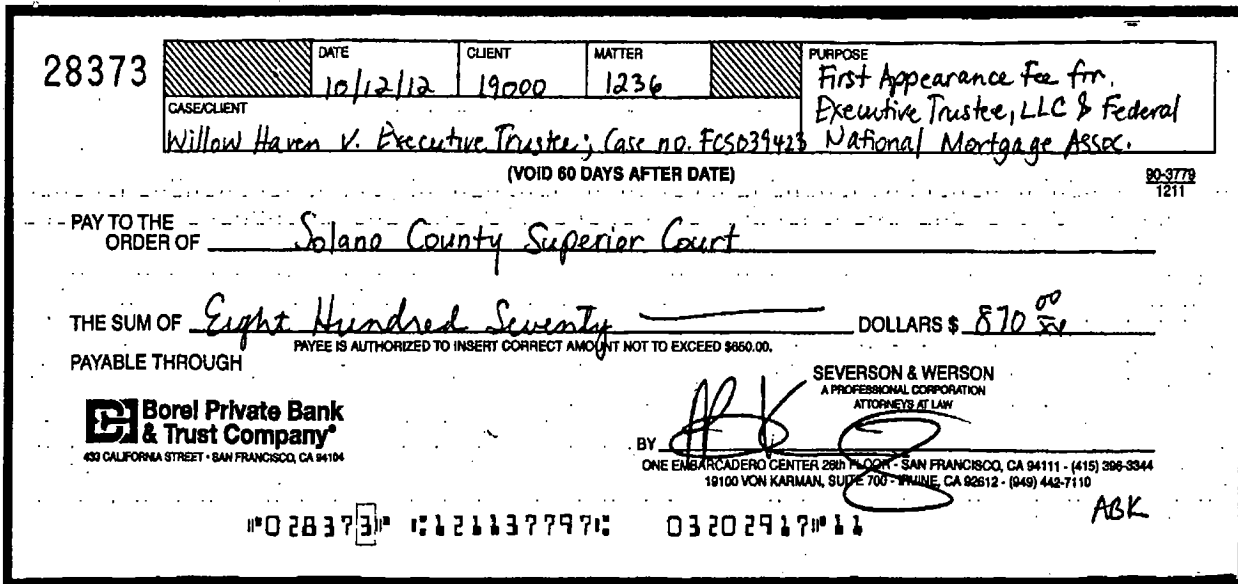 28373
DATE
10/12/12
CLIENT
19000
MATTER
1236
PURPOSE
First Appearance Fee for
Executive Trustee, LLC & Federal
National Mortgage Assoc.
CASE/CLIENT
Willow Haven v. Executive Trustee; Case no. FCS039423
(VOID 60 DAYS AFTER DATE)
90-3779
1211
PAY TO THE
ORDER OF Solano County Superior Court
THE SUM OF Eight Hundred Seventy DOLLARS $ 870 00/xx
PAYEE IS AUTHORIZED TO INSERT CORRECT AMOUNT NOT TO EXCEED $650.00.
PAYABLE THROUGH
Borel Private Bank
& Trust Company®
433 CALIFORNIA STREET • SAN FRANCISCO, CA 94104
SEVERSON & WERSON
A PROFESSIONAL CORPORATION
ATTORNEYS AT LAW
BY
ONE EMBARCADERO CENTER 26th FLOOR - SAN FRANCISCO, CA 94111 - (415) 398-3344
19100 VON KARMAN, SUITE 700 - IRVINE, CA 92612 - (949) 442-7110
ABK
⑈028373⑈ ⑆121137797⑆ 03202917⑈11